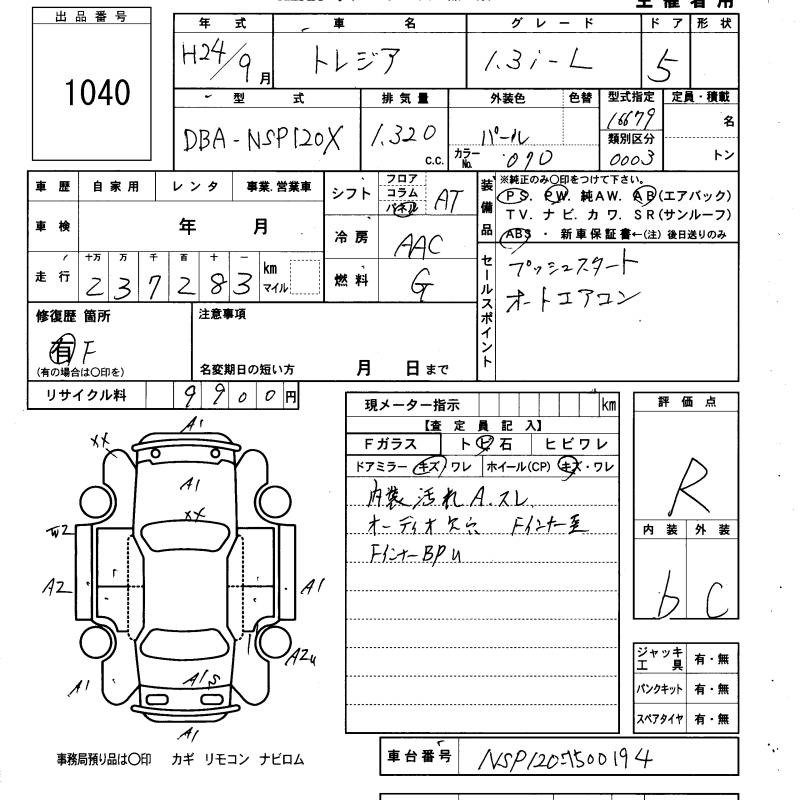 主催者用
出品番号
1040
年式 車名 グレード ドア 形状
H24/9月 トレジア 1.3i-L 5
型式 排気量 外装色 色替 型式指定 定員・積載
DBA-NSP120X 1.320 c.c. パール 16679 名
カラーNo. 070 類別区分 0003 トン
車歴 自家用 レンタ 事業.営業車
車検 年 月
走行 十万 万 千 百 十 一
237283 km マイル
シフト フロア コラム パネル AT
冷房 AAC
燃料 G
装備品 ※純正のみ○印をつけて下さい。
PS. PW. 純AW. AB(エアバック)
TV. ナビ. カワ. SR(サンルーフ)
ABS ・ 新車保証書←(注) 後日送りのみ
セールスポイント
プッシュスタート
オートエアコン
修復歴 箇所
有 F
(有の場合は○印を)
注意事項
名変期日の短い方 月 日まで
リサイクル料 9900円
現メーター指示 km
【査定員記入】
Fガラス トビ石 ヒビワレ
ドアミラー キズ/ワレ ホイール(CP) キズ・ワレ
内装汚れ A.スレ
オーディオ欠穴 Fインナー歪
FインナーBPU
評価点
R
内装 外装
b C
A1
XX
A1
XX
W2
A2
A1
A2U
A1
A1S
A1
ジャッキ 工具 有・無
パンクキット 有・無
スペアタイヤ 有・無
事務局預り品は○印 カギ リモコン ナビロム
車台番号 NSP120-7500194